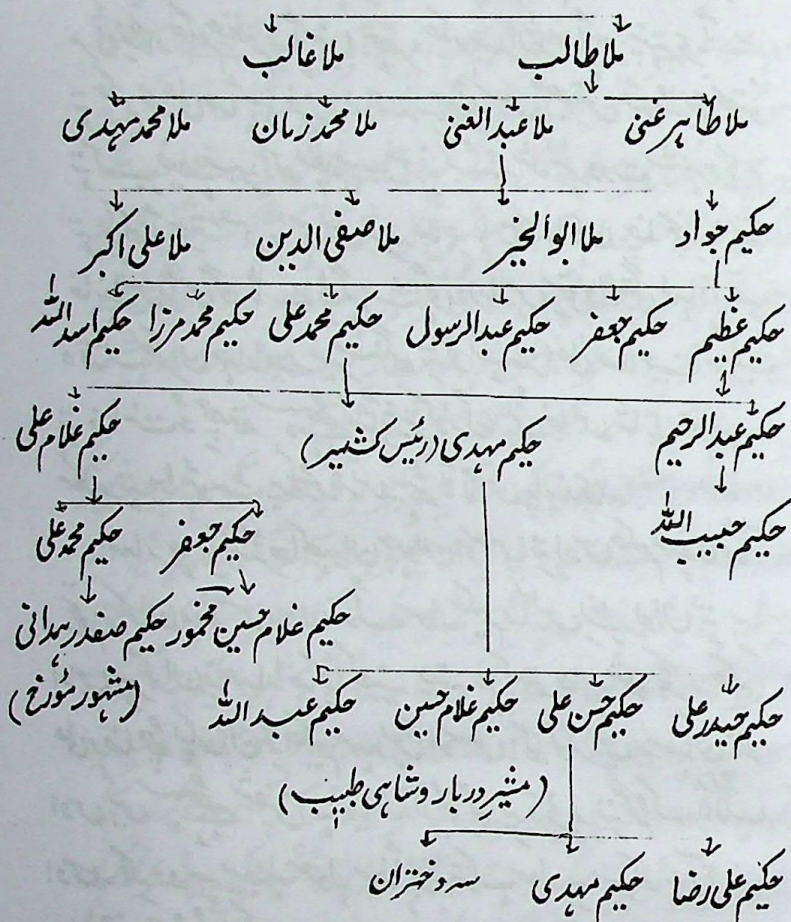 ملا طالب ملا غالب
ملا طاہر غنی ملا عبدالغنی ملا محمد زمان ملا محمد مہدی
حکیم جواد ملا ابوالخیر ملا صفی الدین ملا علی اکبر
حکیم عظیم حکیم جعفر حکیم عبدالرسول حکیم محمد علی حکیم محمد مرزا حکیم اسد اللہ
حکیم عبدالرحیم حکیم مہدی (رئیس کشمیر) حکیم غلام علی
حکیم حبیب اللہ حکیم جعفر حکیم محمد علی
حکیم غلام حسین مخمور حکیم صفدر ہمدانی
(مشہور مؤرخ)
حکیم حیدر علی حکیم حسن علی حکیم غلام حسین حکیم عبد اللہ
(مشیر دربار و شاہی طبیب)
حکیم علی رضا حکیم مہدی سہ دختران